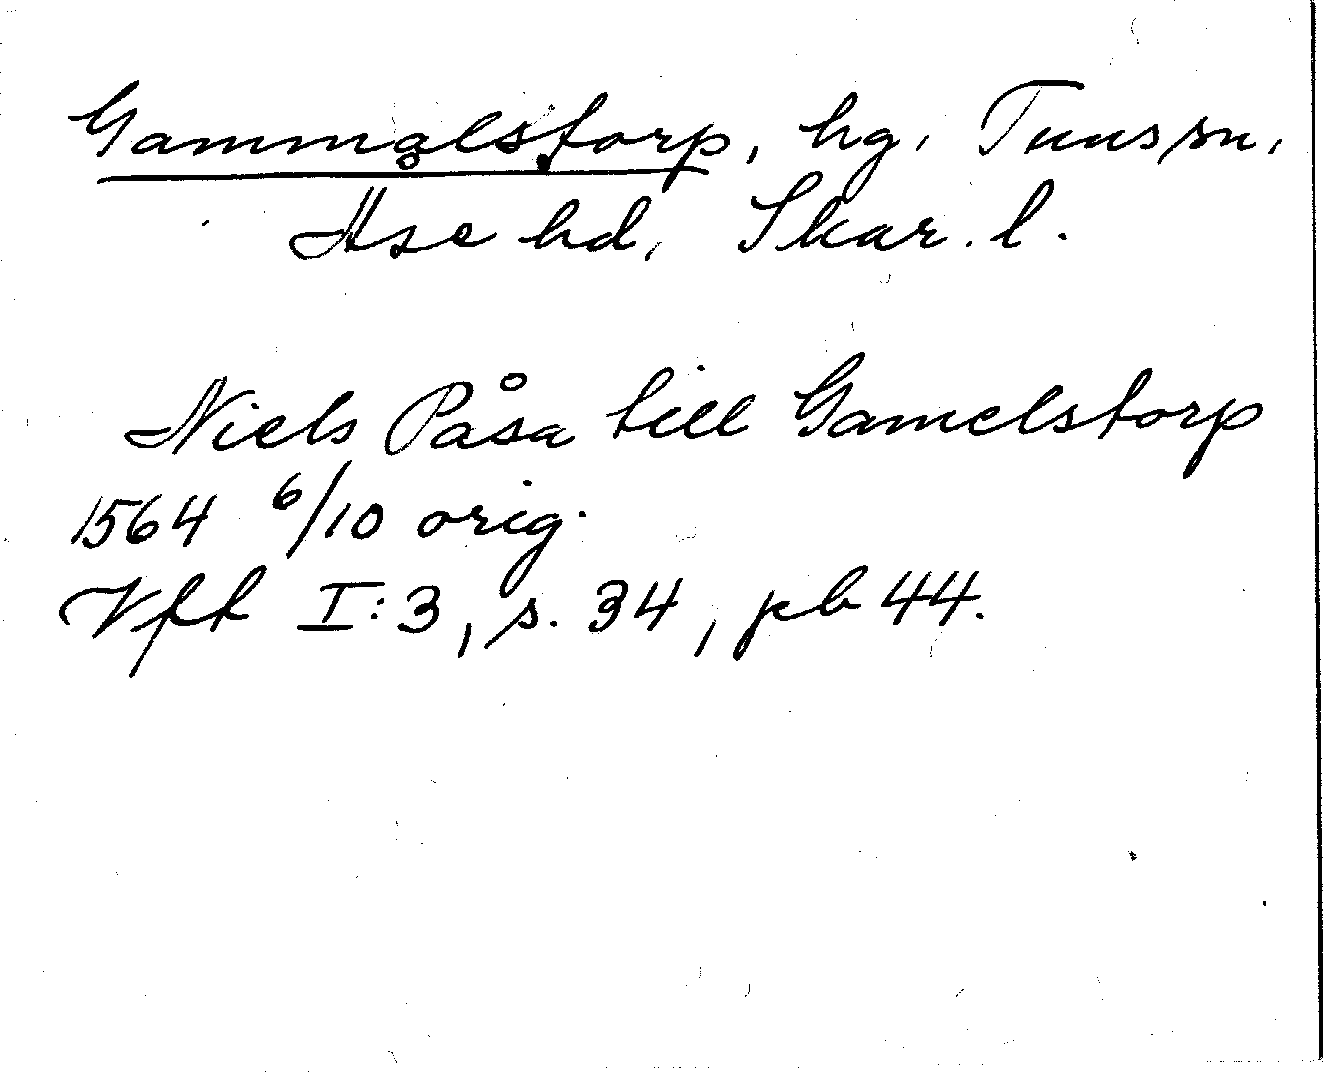 Gammalstorp, hg. Tuns sn,
Åse hd, Skar. l.
Niels Påsa till Gamelstorp
1564 6/10 orig.
Vfft I:3, s. 34, pb 44.